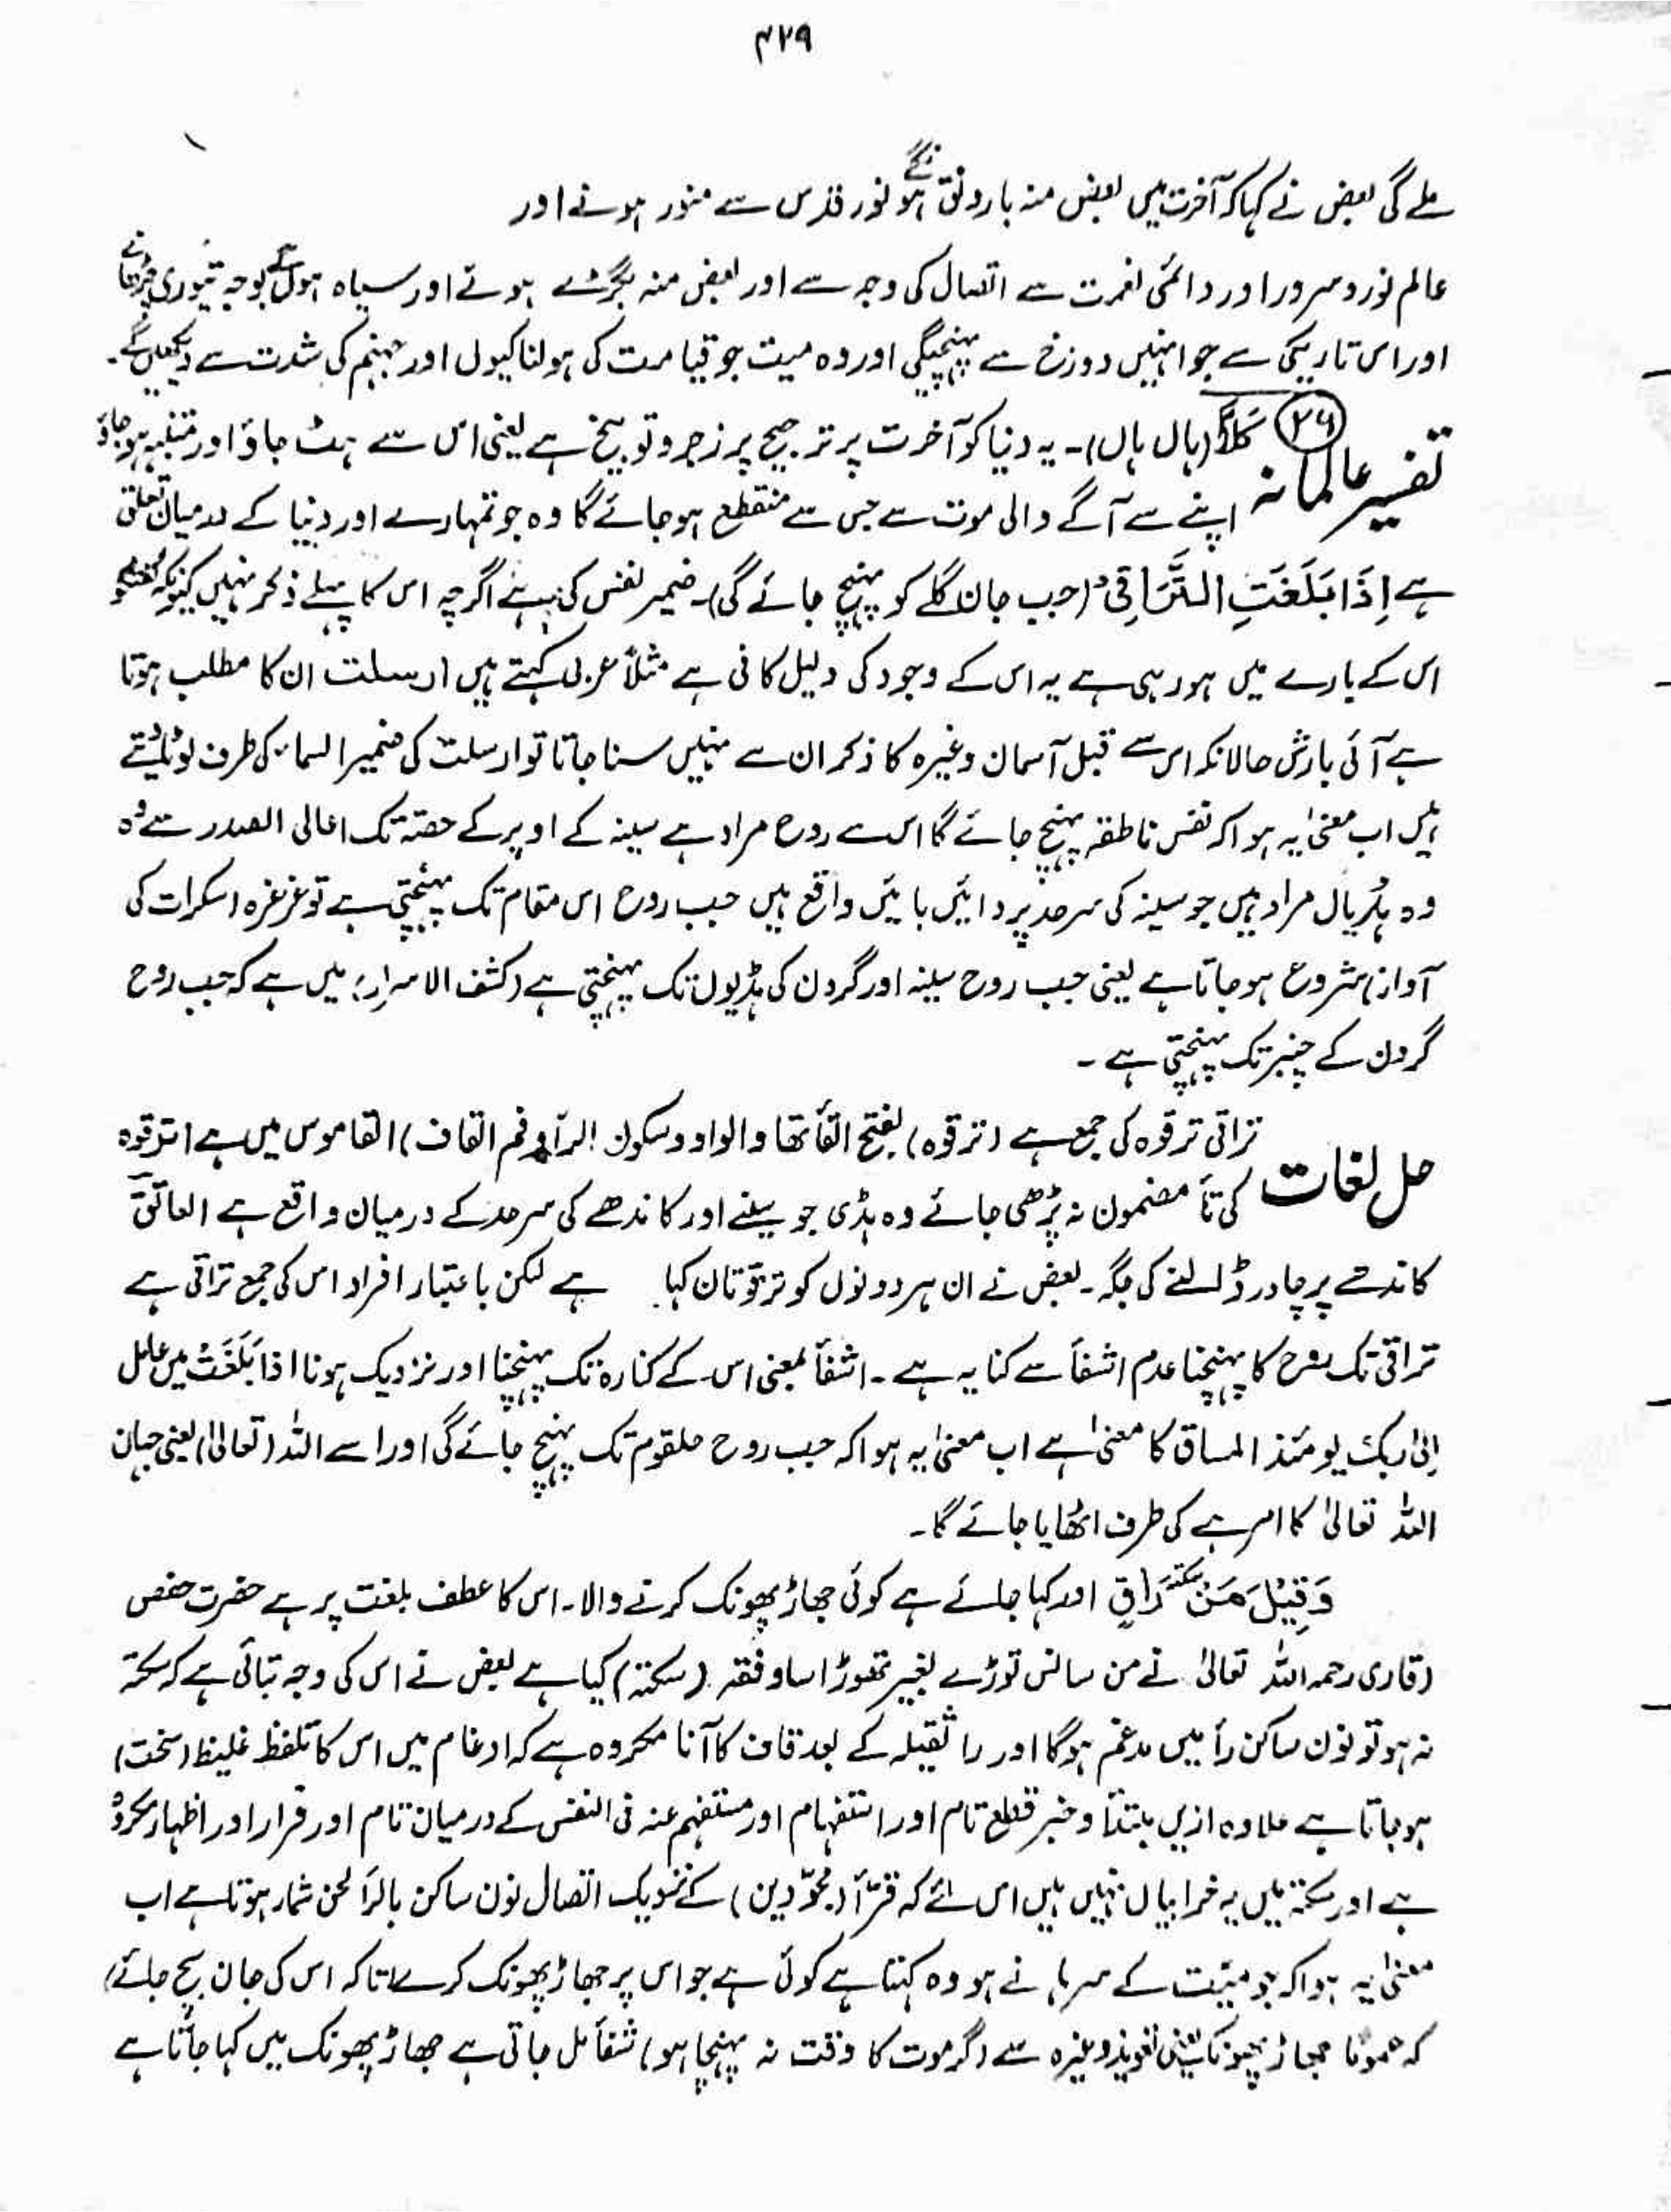 ۴۲۹
ملے گی بعض نے کہا کہ آخرت میں بعض منہ بارونق ہونگے نور قدس سے منور ہونے اور
عالم نور و سرور اور دائمی نعمت سے اتصال کی وجہ سے اور بعض منہ بگڑے ہوئے اور سیاہ ہوں گے بوجہ تیوری چڑھانے
اور اس تاریکی سے جو انہیں دوزخ سے پہنچیگی اور وہ میت جو قیامت کی ہولناکیوں اور جہنم کی شدت سے دیکھیں گے۔
تفسیر عالمانہ
۲۶ کَلَّا (ہاں ہاں)۔ یہ دنیا کو آخرت پر ترجیح پر زجر و توبیخ ہے یعنی اس سے ہٹ جاؤ اور متنبہ ہو جاؤ
اپنے سے آگے والی موت سے جس سے منقطع ہو جائے گا وہ جو تمہارے اور دنیا کے درمیان تعلق
ہے اِذَا بَلَغَتِ التَّرَاقِیَ (جب جان گلے کو پہنچ جائے گی)۔ ضمیر نفس کی ہے اگرچہ اس کا پہلے ذکر نہیں کیونکہ گفتگو
اس کے بارے میں ہو رہی ہے یہ اس کے وجود کی دلیل کافی ہے مثلاً عربی کہتے ہیں ارسلت ان کا مطلب ہوتا
ہے آئی بارش حالانکہ اس سے قبل آسمان وغیرہ کا ذکر ان سے نہیں سنا جاتا تو ارسلت کی ضمیر السماء کی طرف لوٹا دیتے
ہیں اب معنیٰ یہ ہوا کہ نفس ناطقہ پہنچ جائے گا اس سے روح مراد ہے سینہ کے اوپر کے حصّہ تک اعالی الصدر سے وہ
وہ ہڈیاں مراد ہیں جو سینہ کی سرحد پر دائیں بائیں واقع ہیں جب روح اس مقام تک پہنچتی ہے تو غرغرہ (سکرات کی
آواز) شروع ہو جاتا ہے یعنی جب روح سینہ اور گردن کی ہڈیوں تک پہنچتی ہے (کشف الاسرار) میں ہے کہ جب روح
گردن کے چنبر تک پہنچتی ہے ۔
حل لغات
تراقی ترقوہ کی جمع ہے (ترقوہ) بفتح التأ تھا والواو وسکون الرأ وضم القاف) القاموس میں ہے الترقوہ
کی تأ مضموم نہ پڑھی جائے وہ ہڈی جو سینے اور کاندھے کی سرحد کے درمیان واقع ہے العاتق
کاندھے پر چادر ڈالنے کی جگہ۔ بعض نے ان ہر دونوں کو ترقوتان کہا ہے لیکن باعتبار افراد اس کی جمع تراقی ہے
تراقی تک روح کا پہنچنا عدم اشفأ سے کنایہ ہے ۔ اشفأ بمعنی اس کے کنارہ تک پہنچنا اور نزدیک ہونا اذا بَلَغَتْ میں عامل
اِلیٰ ربک یومئذ المساق کا معنیٰ ہے اب معنیٰ یہ ہوا کہ جب روح حلقوم تک پہنچ جائے گی اور اسے اللہ (تعالیٰ) یعنی جہان
اللہ تعالیٰ کا امر ہے کی طرف اٹھایا جائے گا۔
وَقِیْلَ مَنْ سکتہ رَاقٍ اور کہا جائے ہے کوئی جھاڑ پھونک کرنے والا۔ اس کا عطف بلغت پر ہے حضرت حفص
(قاری رحمہ اللہ تعالیٰ نے من سانس توڑے بغیر تھوڑا سا وقفہ (سکتہ) کیا ہے بعض نے اس کی وجہ بتائی ہے کہ سکتہ
نہ ہو تو نون ساکن رأ میں مدغم ہوگا اور را ثقیلہ کے بعد قاف کا آنا مکروہ ہے کہ ادغام میں اس کا تلفظ غلیظ (سخت)
ہو جاتا ہے علاوہ ازیں مبتدأ و خبر قطع تام اور استفہام اور مستفہم عنہ فی النفس کے درمیان تام اور قرار اور اظہار مکروہ
ہے اور سکتہ میں یہ خرابیاں نہیں ہیں اس لئے کہ قرّأ (مجوّدین) کے نزدیک اتصال نون ساکن بالرأ لحن شمار ہوتا ہے اب
معنیٰ یہ ہوا کہ جو میّت کے سرہانے ہو وہ کہتا ہے کوئی ہے جو اس پر جھاڑ پھونک کرے تاکہ اس کی جان بچ جائے)
کہ عموماً جھاڑ پھونک یعنی تعویذ وغیرہ سے (گر موت کا وقت نہ پہنچا ہو) شفأ مل جاتی ہے جھاڑ پھونک میں کہا جاتا ہے